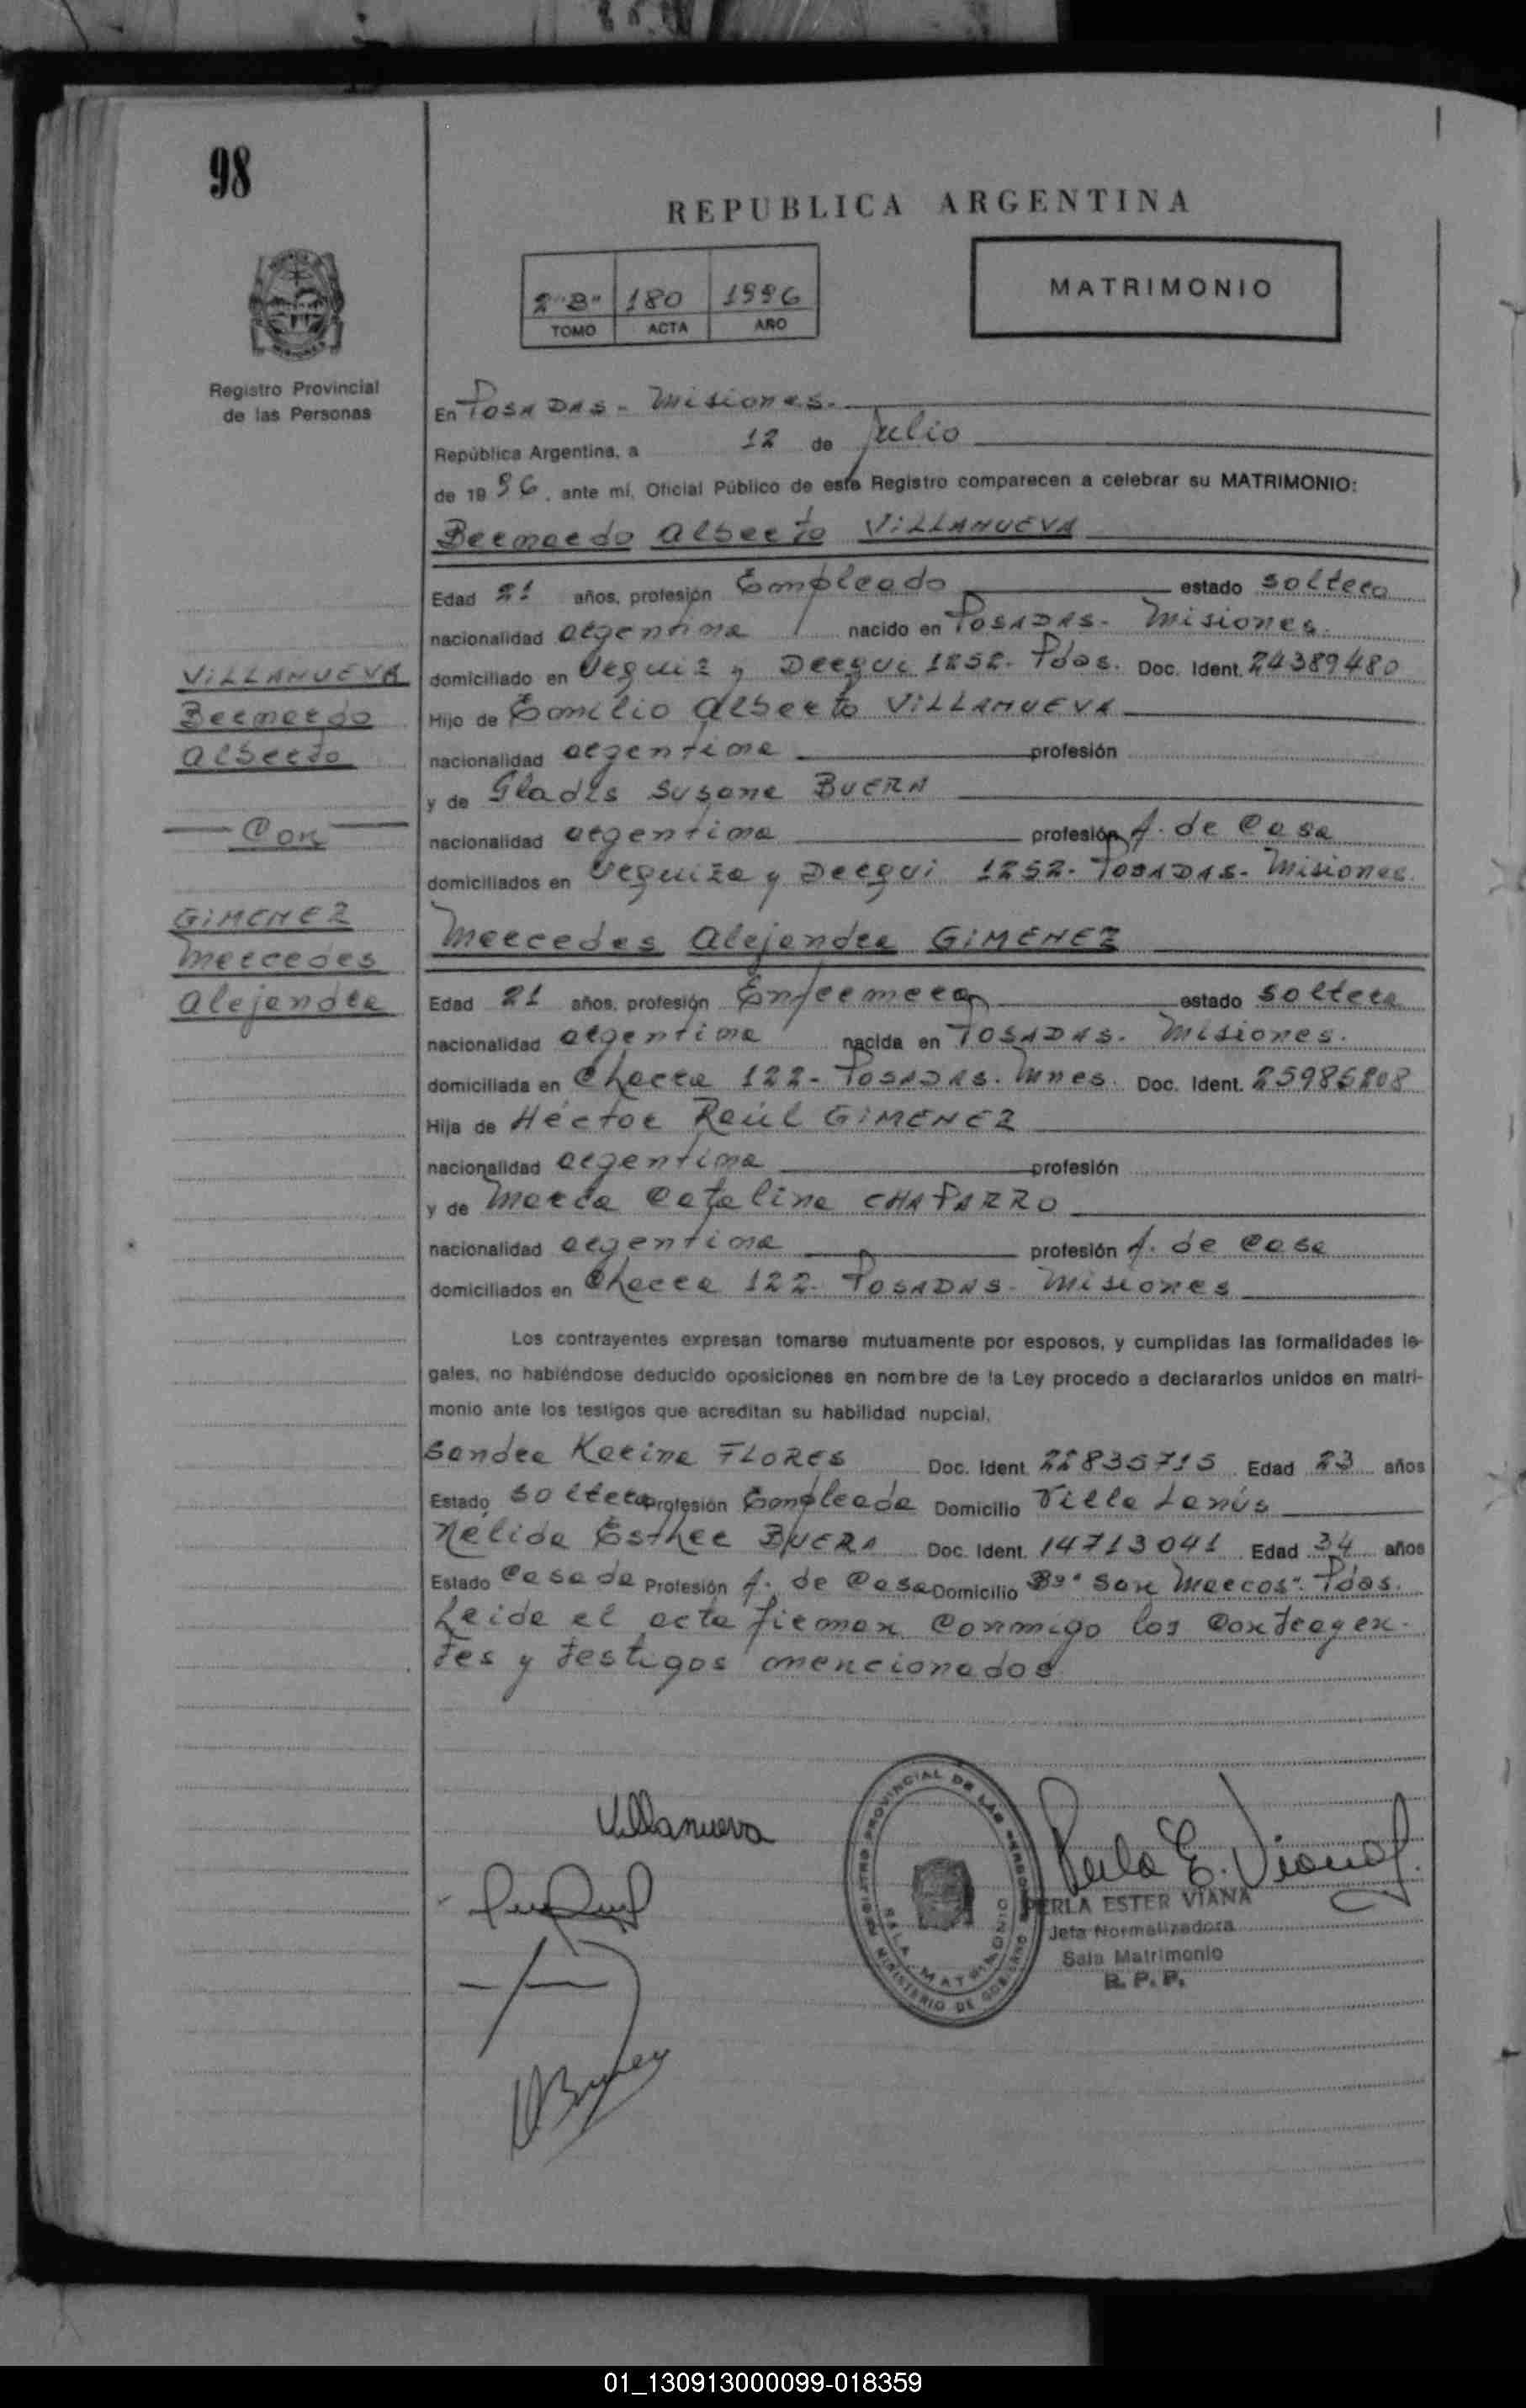 98
REPUBLICA ARGENTINA
2 "B" 180 1996
TOMO ACTA AÑO
MATRIMONIO
Registro Provincial
de las Personas
En Posadas - Misiones.
República Argentina, a 12 de Julio
de 1996, ante mí, Oficial Público de este Registro comparecen a celebrar su MATRIMONIO:
Bernardo Alberto VILLANUEVA
Edad 21 años, profesión Empleado estado soltero
nacionalidad argentina nacido en Posadas - Misiones.
domiciliado en Urquiz y Derqui 1252. Pdas. Doc. Ident. 24389480
Hijo de Emilio Alberto VILLANUEVA
nacionalidad argentina profesión
y de Gladis Susana BUERA
nacionalidad argentina profesión A. de Casa
domiciliados en Urquiza y Derqui 1252. Posadas - Misiones.
VILLANUEVA
Bernardo
Alberto
Con
GIMENEZ
Mercedes
Alejandra
Mercedes Alejandra GIMENEZ
Edad 21 años, profesión Enfermera estado soltera
nacionalidad argentina nacida en Posadas. Misiones.
domiciliada en Chacra 122 - Posadas. Mnes. Doc. Ident. 25985208
Hija de Héctor Raúl GIMENEZ
nacionalidad argentina profesión
y de Catalina CHAPARRO
nacionalidad argentina profesión A. de Casa
domiciliados en Chacra 122. Posadas - Misiones
Los contrayentes expresan tomarse mutuamente por esposos, y cumplidas las formalidades le-
gales, no habiéndose deducido oposiciones en nombre de la Ley procedo a declararlos unidos en matri-
monio ante los testigos que acreditan su habilidad nupcial.
Sandra Karina FLORES Doc. Ident. 22835715 Edad 23 años
Estado soltera profesión Empleada Domicilio Villa Lanús
Nélida Esther BUERA Doc. Ident. 14713041 Edad 34 años
Estado Casada Profesión A. de Casa Domicilio Bº "San Marcos". Pdas.
Leida el acta firman conmigo los contrayen-
tes y testigos mencionados
Villanueva
REGISTRO PROVINCIAL DE LAS PERSONAS
SALA MATRIMONIO
MINISTERIO DE GOBIERNO
Perla E. Viana
PERLA ESTER VIANA
Jefa Normalizadora
Sala Matrimonio
R. P. P.
01_130913000099-018359